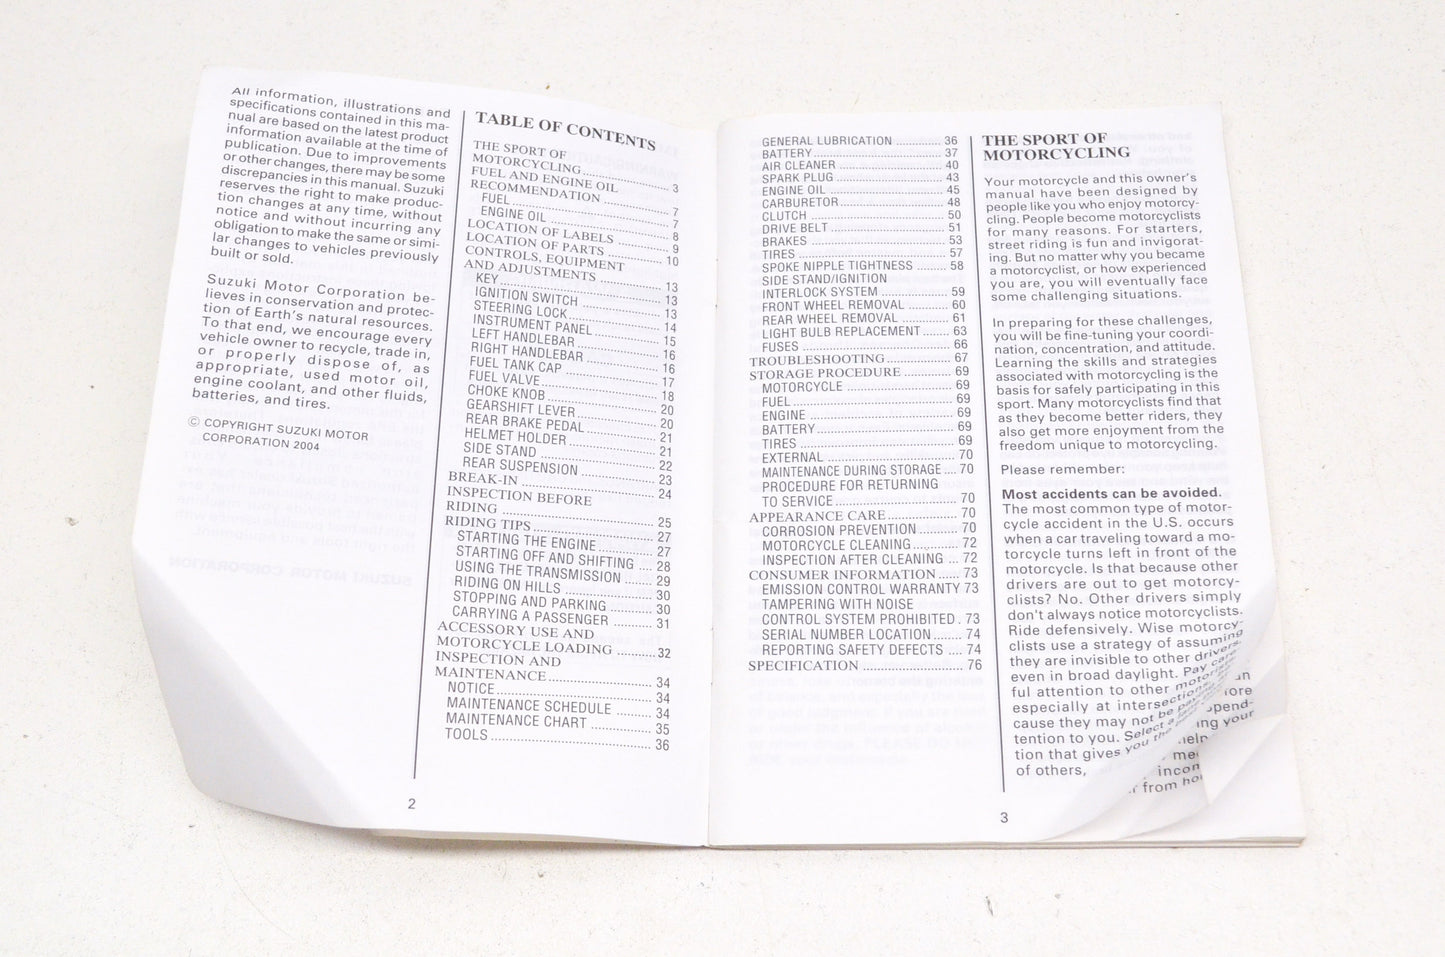 All information, illustrations and
specifications contained in this ma-
nual are based on the latest product
information available at the time of
publication. Due to improvements
or other changes, there may be some
discrepancies in this manual. Suzuki
reserves the right to make produc-
tion changes at any time, without
notice and without incurring any
obligation to make the same or simi-
lar changes to vehicles previously
built or sold.
Suzuki Motor Corporation be-
lieves in conservation and protec-
tion of Earth's natural resources.
To that end, we encourage every
vehicle owner to recycle, trade in,
or properly dispose of, as
appropriate, used motor oil,
engine coolant, and other fluids,
batteries, and tires.
© COPYRIGHT SUZUKI MOTOR
CORPORATION 2004
TABLE OF CONTENTS
THE SPORT OF
MOTORCYCLING........................ 3
FUEL AND ENGINE OIL
RECOMMENDATION .................. 7
FUEL........................................ 7
ENGINE OIL .............................. 8
LOCATION OF LABELS .............. 9
LOCATION OF PARTS ................ 10
CONTROLS, EQUIPMENT
AND ADJUSTMENTS .................. 13
KEY.......................................... 13
IGNITION SWITCH .................... 13
STEERING LOCK........................ 14
INSTRUMENT PANEL................ 15
LEFT HANDLEBAR .................... 16
RIGHT HANDLEBAR .................. 16
FUEL TANK CAP ........................ 17
FUEL VALVE.............................. 18
CHOKE KNOB............................ 20
GEARSHIFT LEVER.................... 20
REAR BRAKE PEDAL.................. 21
HELMET HOLDER ...................... 21
SIDE STAND .............................. 22
REAR SUSPENSION .................. 23
BREAK-IN .................................. 24
INSPECTION BEFORE
RIDING ...................................... 25
RIDING TIPS .............................. 27
STARTING THE ENGINE............ 27
STARTING OFF AND SHIFTING .... 28
USING THE TRANSMISSION ....... 29
RIDING ON HILLS ...................... 30
STOPPING AND PARKING .......... 30
CARRYING A PASSENGER .......... 31
ACCESSORY USE AND
MOTORCYCLE LOADING .......... 32
INSPECTION AND
MAINTENANCE.......................... 34
NOTICE...................................... 34
MAINTENANCE SCHEDULE ........ 34
MAINTENANCE CHART .............. 35
TOOLS ...................................... 36
2
GENERAL LUBRICATION ............ 36
BATTERY.................................. 37
AIR CLEANER ............................ 40
SPARK PLUG ............................ 43
ENGINE OIL .............................. 45
CARBURETOR............................ 48
CLUTCH .................................... 50
DRIVE BELT .............................. 51
BRAKES .................................... 53
TIRES ........................................ 57
SPOKE NIPPLE TIGHTNESS ........ 58
SIDE STAND/IGNITION
INTERLOCK SYSTEM ................ 59
FRONT WHEEL REMOVAL .......... 60
REAR WHEEL REMOVAL ............ 61
LIGHT BULB REPLACEMENT........ 63
FUSES ...................................... 66
TROUBLESHOOTING.................. 67
STORAGE PROCEDURE .............. 69
MOTORCYCLE .......................... 69
FUEL........................................ 69
ENGINE .................................... 69
BATTERY.................................. 69
TIRES ........................................ 69
EXTERNAL ................................ 70
MAINTENANCE DURING STORAGE .... 70
PROCEDURE FOR RETURNING
TO SERVICE.............................. 70
APPEARANCE CARE.................. 70
CORROSION PREVENTION .......... 70
MOTORCYCLE CLEANING............ 72
INSPECTION AFTER CLEANING ... 72
CONSUMER INFORMATION ...... 73
EMISSION CONTROL WARRANTY 73
TAMPERING WITH NOISE
CONTROL SYSTEM PROHIBITED . 73
SERIAL NUMBER LOCATION........ 74
REPORTING SAFETY DEFECTS .... 74
SPECIFICATION ........................ 76
THE SPORT OF
MOTORCYCLING
Your motorcycle and this owner's
manual have been designed by
people like you who enjoy motorcy-
cling. People become motorcyclists
for many reasons. For starters,
street riding is fun and invigorat-
ing. But no matter why you became
a motorcyclist, or how experienced
you are, you will eventually face
some challenging situations.
In preparing for these challenges,
you will be fine-tuning your coordi-
nation, concentration, and attitude.
Learning the skills and strategies
associated with motorcycling is the
basis for safely participating in this
sport. Many motorcyclists find that
as they become better riders, they
also get more enjoyment from the
freedom unique to motorcycling.
Please remember:
Most accidents can be avoided.
The most common type of motor-
cycle accident in the U.S. occurs
when a car traveling toward a mo-
torcycle turns left in front of the
motorcycle. Is that because other
drivers are out to get motorcy-
clists? No. Other drivers simply
don't always notice motorcyclists.
Ride defensively. Wise motorcy-
clists use a strategy of assuming
they are invisible to other drivers,
even in broad daylight. Pay care-
ful attention to other
especially at intersections,
cause they may not be
tention to you. Select a
tion that gives you the
of others,
from
3